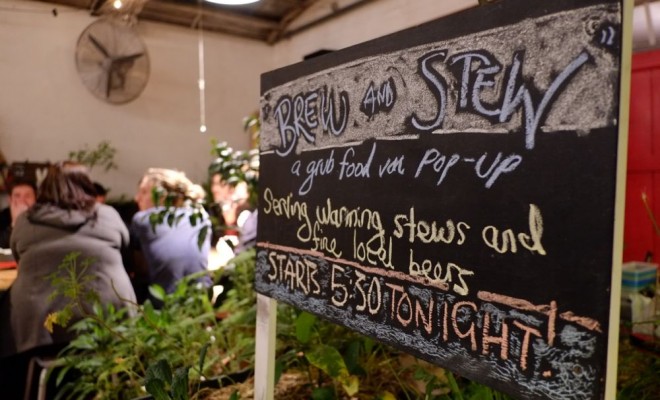 "BREW AND STEW"
a grub food van Pop-UP
Serving warming stews and
fine local beers
STARTS 5:30 TONIGHT!